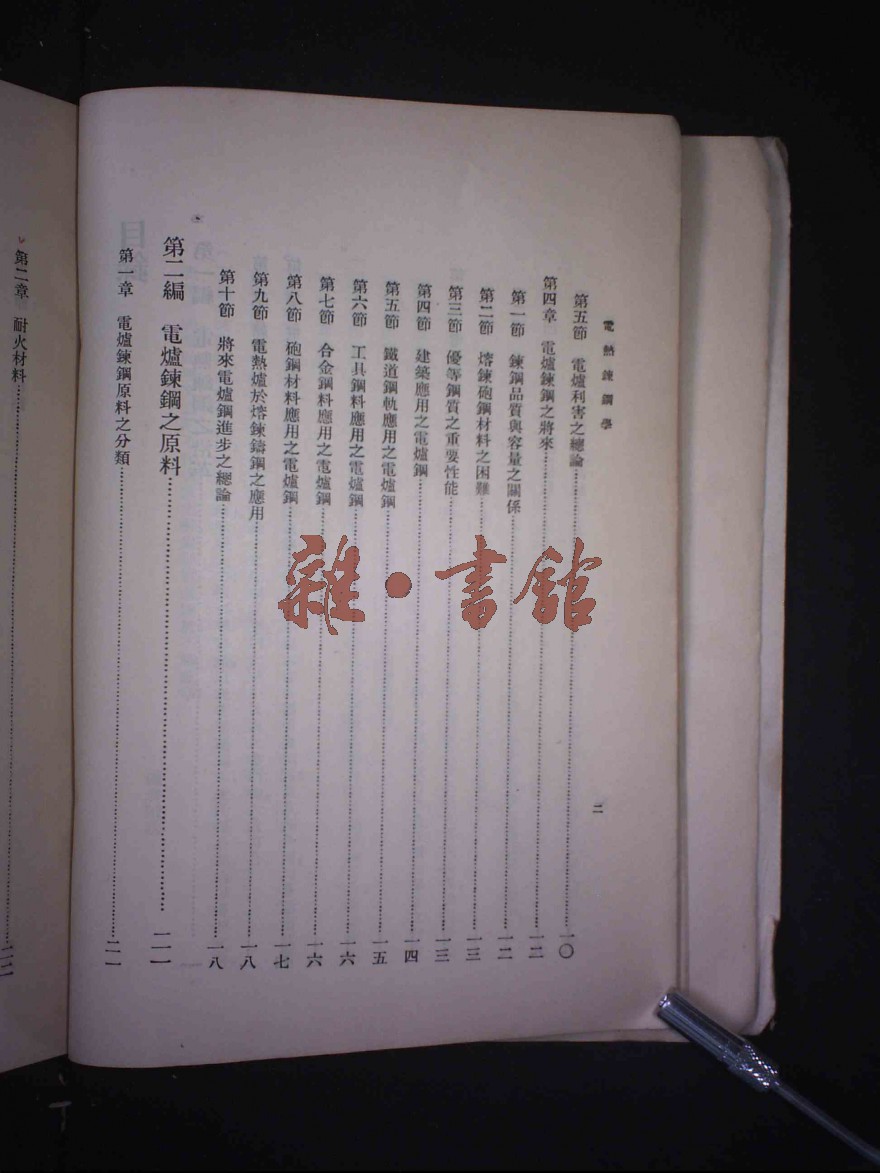 電熱鍊鋼學
二
第五節 電爐利害之總論……一〇
第四章 電爐鍊鋼之將來……一二
第一節 鍊鋼品質與容量之關係……一二
第二節 熔鍊砲鋼材料之困難……一三
第三節 優等鋼質之重要性能……一三
第四節 建築應用之電爐鋼……一四
第五節 鐵道鋼軌應用之電爐鋼……一五
第六節 工具鋼料應用之電爐鋼……一六
第七節 合金鋼料應用之電爐鋼……一六
第八節 砲鋼材料應用之電爐鋼……一七
第九節 電熱爐於熔鍊鑄鋼之應用……一八
第十節 將來電爐鋼進步之總論……一八
第二編 電爐鍊鋼之原料……二一
第一章 電爐鍊鋼原料之分類……二一
第二章 耐火材料……二二
雜·書館